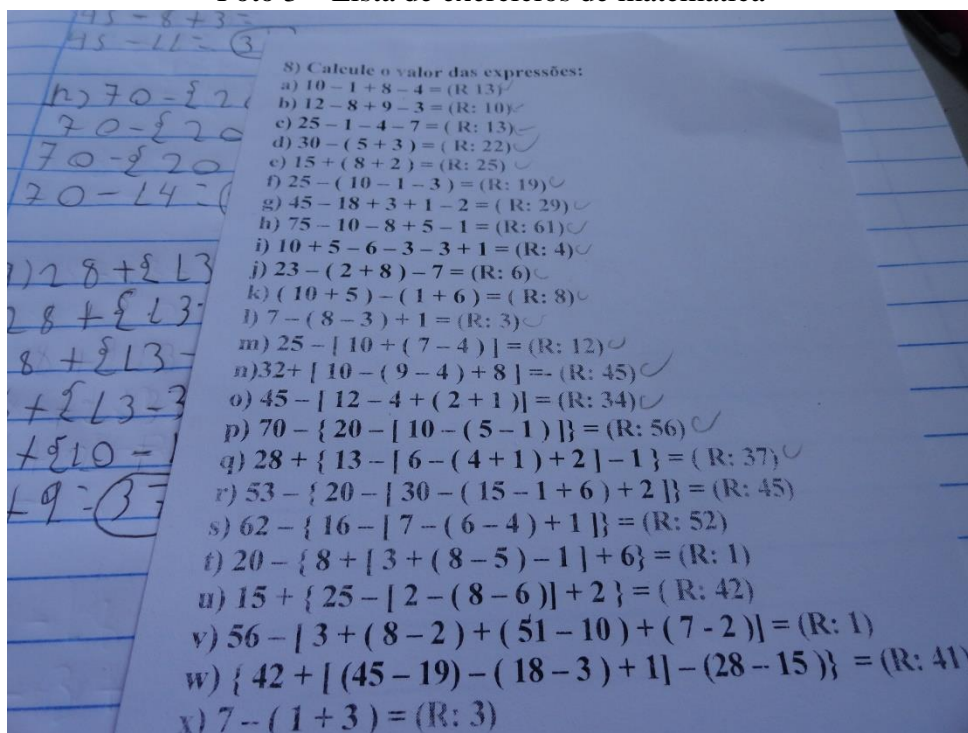 Foto 3 – Lista de exercícios de matemática
45 - 8 + 3 =
45 - 11 = 3
n) 70 - { 20
70 - { 20
70 - { 20
70 - 14 = (
28 + { 13
28 + { 13 -
8 + { 13 -
+ { 13 - 3
+ { 10 - 1
+ 9 = 37
8) Calcule o valor das expressões:
a) 10 – 1 + 8 – 4 = (R 13)
b) 12 – 8 + 9 – 3 = (R: 10)
c) 25 – 1 – 4 – 7 = ( R: 13)
d) 30 – ( 5 + 3 ) = ( R: 22)
e) 15 + ( 8 + 2 ) = (R: 25)
f) 25 – ( 10 – 1 – 3 ) = (R: 19)
g) 45 – 18 + 3 + 1 – 2 = ( R: 29)
h) 75 – 10 – 8 + 5 – 1 = (R: 61)
i) 10 + 5 – 6 – 3 – 3 + 1 = (R: 4)
j) 23 – ( 2 + 8 ) – 7 = (R: 6)
k) ( 10 + 5 ) – ( 1 + 6 ) = ( R: 8)
l) 7 – ( 8 – 3 ) + 1 = (R: 3)
m) 25 – [ 10 + ( 7 – 4 ) ] = (R: 12)
n)32+ [ 10 – ( 9 – 4 ) + 8 ] =- (R: 45)
o) 45 – [ 12 – 4 + ( 2 + 1 )] = (R: 34)
p) 70 – { 20 – [ 10 – ( 5 – 1 ) ]} = (R: 56)
q) 28 + { 13 – [ 6 – ( 4 + 1 ) + 2 ] – 1 } = ( R: 37)
r) 53 – { 20 – [ 30 – ( 15 – 1 + 6 ) + 2 ]} = (R: 45)
s) 62 – { 16 – [ 7 – ( 6 – 4 ) + 1 ]} = (R: 52)
t) 20 – { 8 + [ 3 + ( 8 – 5 ) – 1 ] + 6} = (R: 1)
u) 15 + { 25 – [ 2 – ( 8 – 6 )] + 2 } = ( R: 42)
v) 56 – [ 3 + ( 8 – 2 ) + ( 51 – 10 ) + ( 7 - 2 )] = (R: 1)
w) { 42 + [ (45 – 19) – ( 18 – 3 ) + 1] – (28 – 15 )} = (R: 41)
x) 7 – ( 1 + 3 ) = (R: 3)